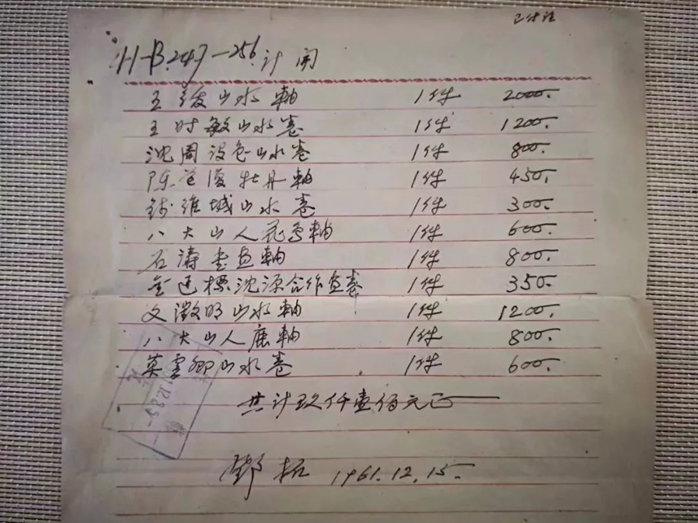 H-B.247-256 计开
王绂山水軸 1件 2000.
王时敏山水卷 1件 1200.
沈周设色山水卷 1件 800.
陈道復牡丹軸 1件 450.
钱维城山水卷 1件 300.
八大山人花鸟軸 1件 600.
石涛書画軸 1件 800.
金廷標沈源合作画卷 1件 350.
文徵明山水軸 1件 1200.
八大山人鹿軸 1件 800.
莫雲卿山水卷 1件 600.
共计玖仟壹佰元正
鄧拓 1961.12.15.